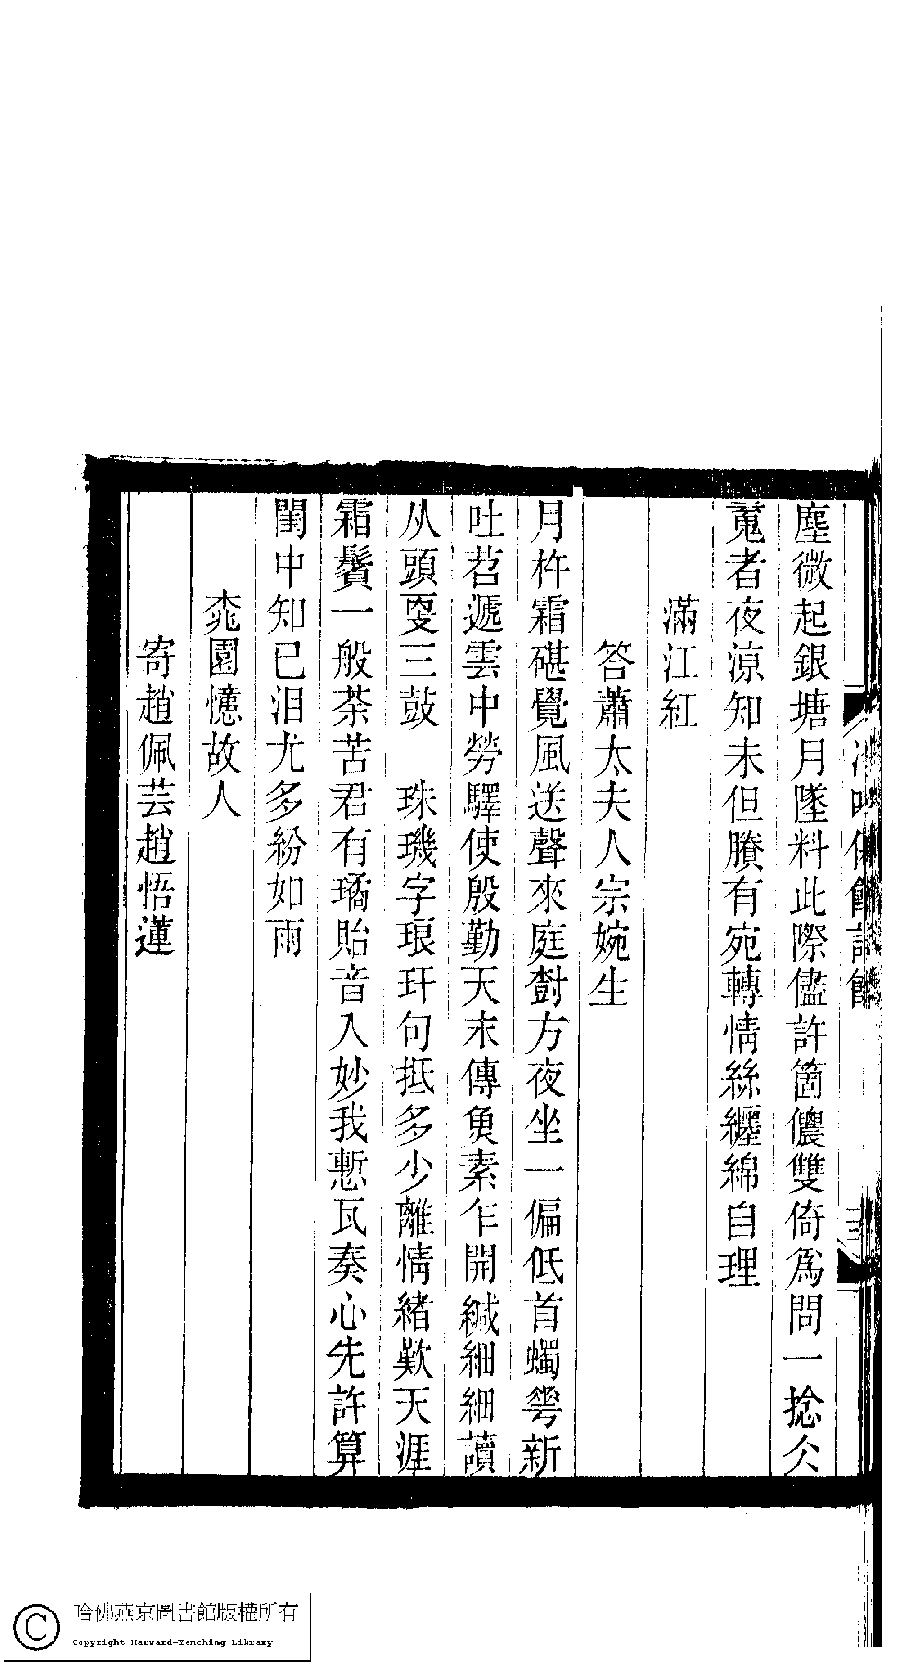 塵微起銀塘月墜料此際儘許箇儂雙倚爲問一捻仌
蒐者夜涼知未但賸有宛轉情絲纒綿自理
滿江紅
答蕭太夫人宗婉生
月杵霜碪覺風送聲來庭尌方夜坐一偏低首蠋䓵新
吐苕遞雲中勞驛使殷勤天末傳魚素乍開緘細細讀
从頭㪅三鼓　珠璣字琅玕句抵多少離情緒歎天涯
霜鬢一般荼苦君有璚貽音入妙我慙瓦奏心先許算
閨中知已泪尤多紛如雨
䆻園憶故人
寄趙佩芸趙悟蓮
三
哈佛燕京圖書館版權所有
Copyright Harvard-Yenching Library